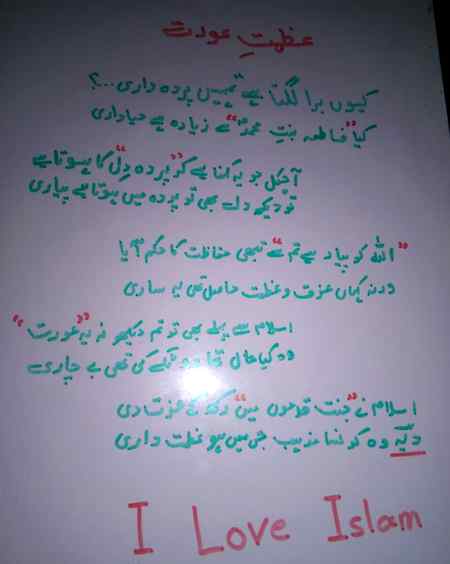 عظمتِ عورت
کیوں برا لگتا ہے تمہیں پردہ داری ...؟
کیا "فاطمہ بنتِ محمدؐ" سے زیادہ ہے حیاداری
آجکل جو یہ کہنا ہے کہ "پردہ دِل" کا ہوتا ہے
تو دیکھ دل بھی تو پردہ میں ہوتا ہے پیاری
"اللہ کو پیار ہے تم سے" تبھی حفاظت کا حکم آیا
ورنہ کہاں عزت و عظمت حاصل تھی یہ ساری
اسلام سے پہلے بھی تو تم دیکھو نہ یہ "عورت"
وہ کیا حال تھا ہو کی تھی بے چاری
اسلام نے "جنت قدموں میں" رکھ کے عزت دی
دیکھ وہ کونسا مذہب جس میں ہو عظمت داری
I Love Islam